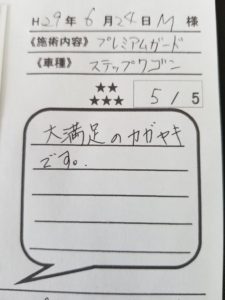 H29年6月24日M様
《施術内容》プレミアムガード
《車種》ステップワゴン
★★
★★★
5/5
大満足のカガヤキ
です。